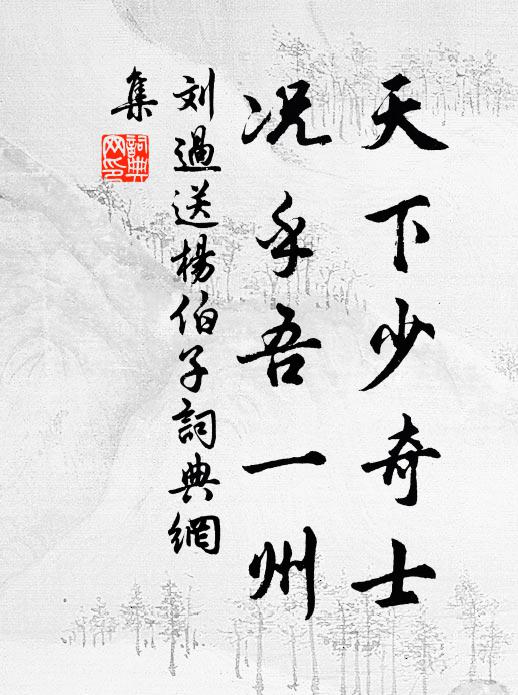 天下少奇士
况乎吾一州
刘過送楊伯子詞典網
集
詞典網印